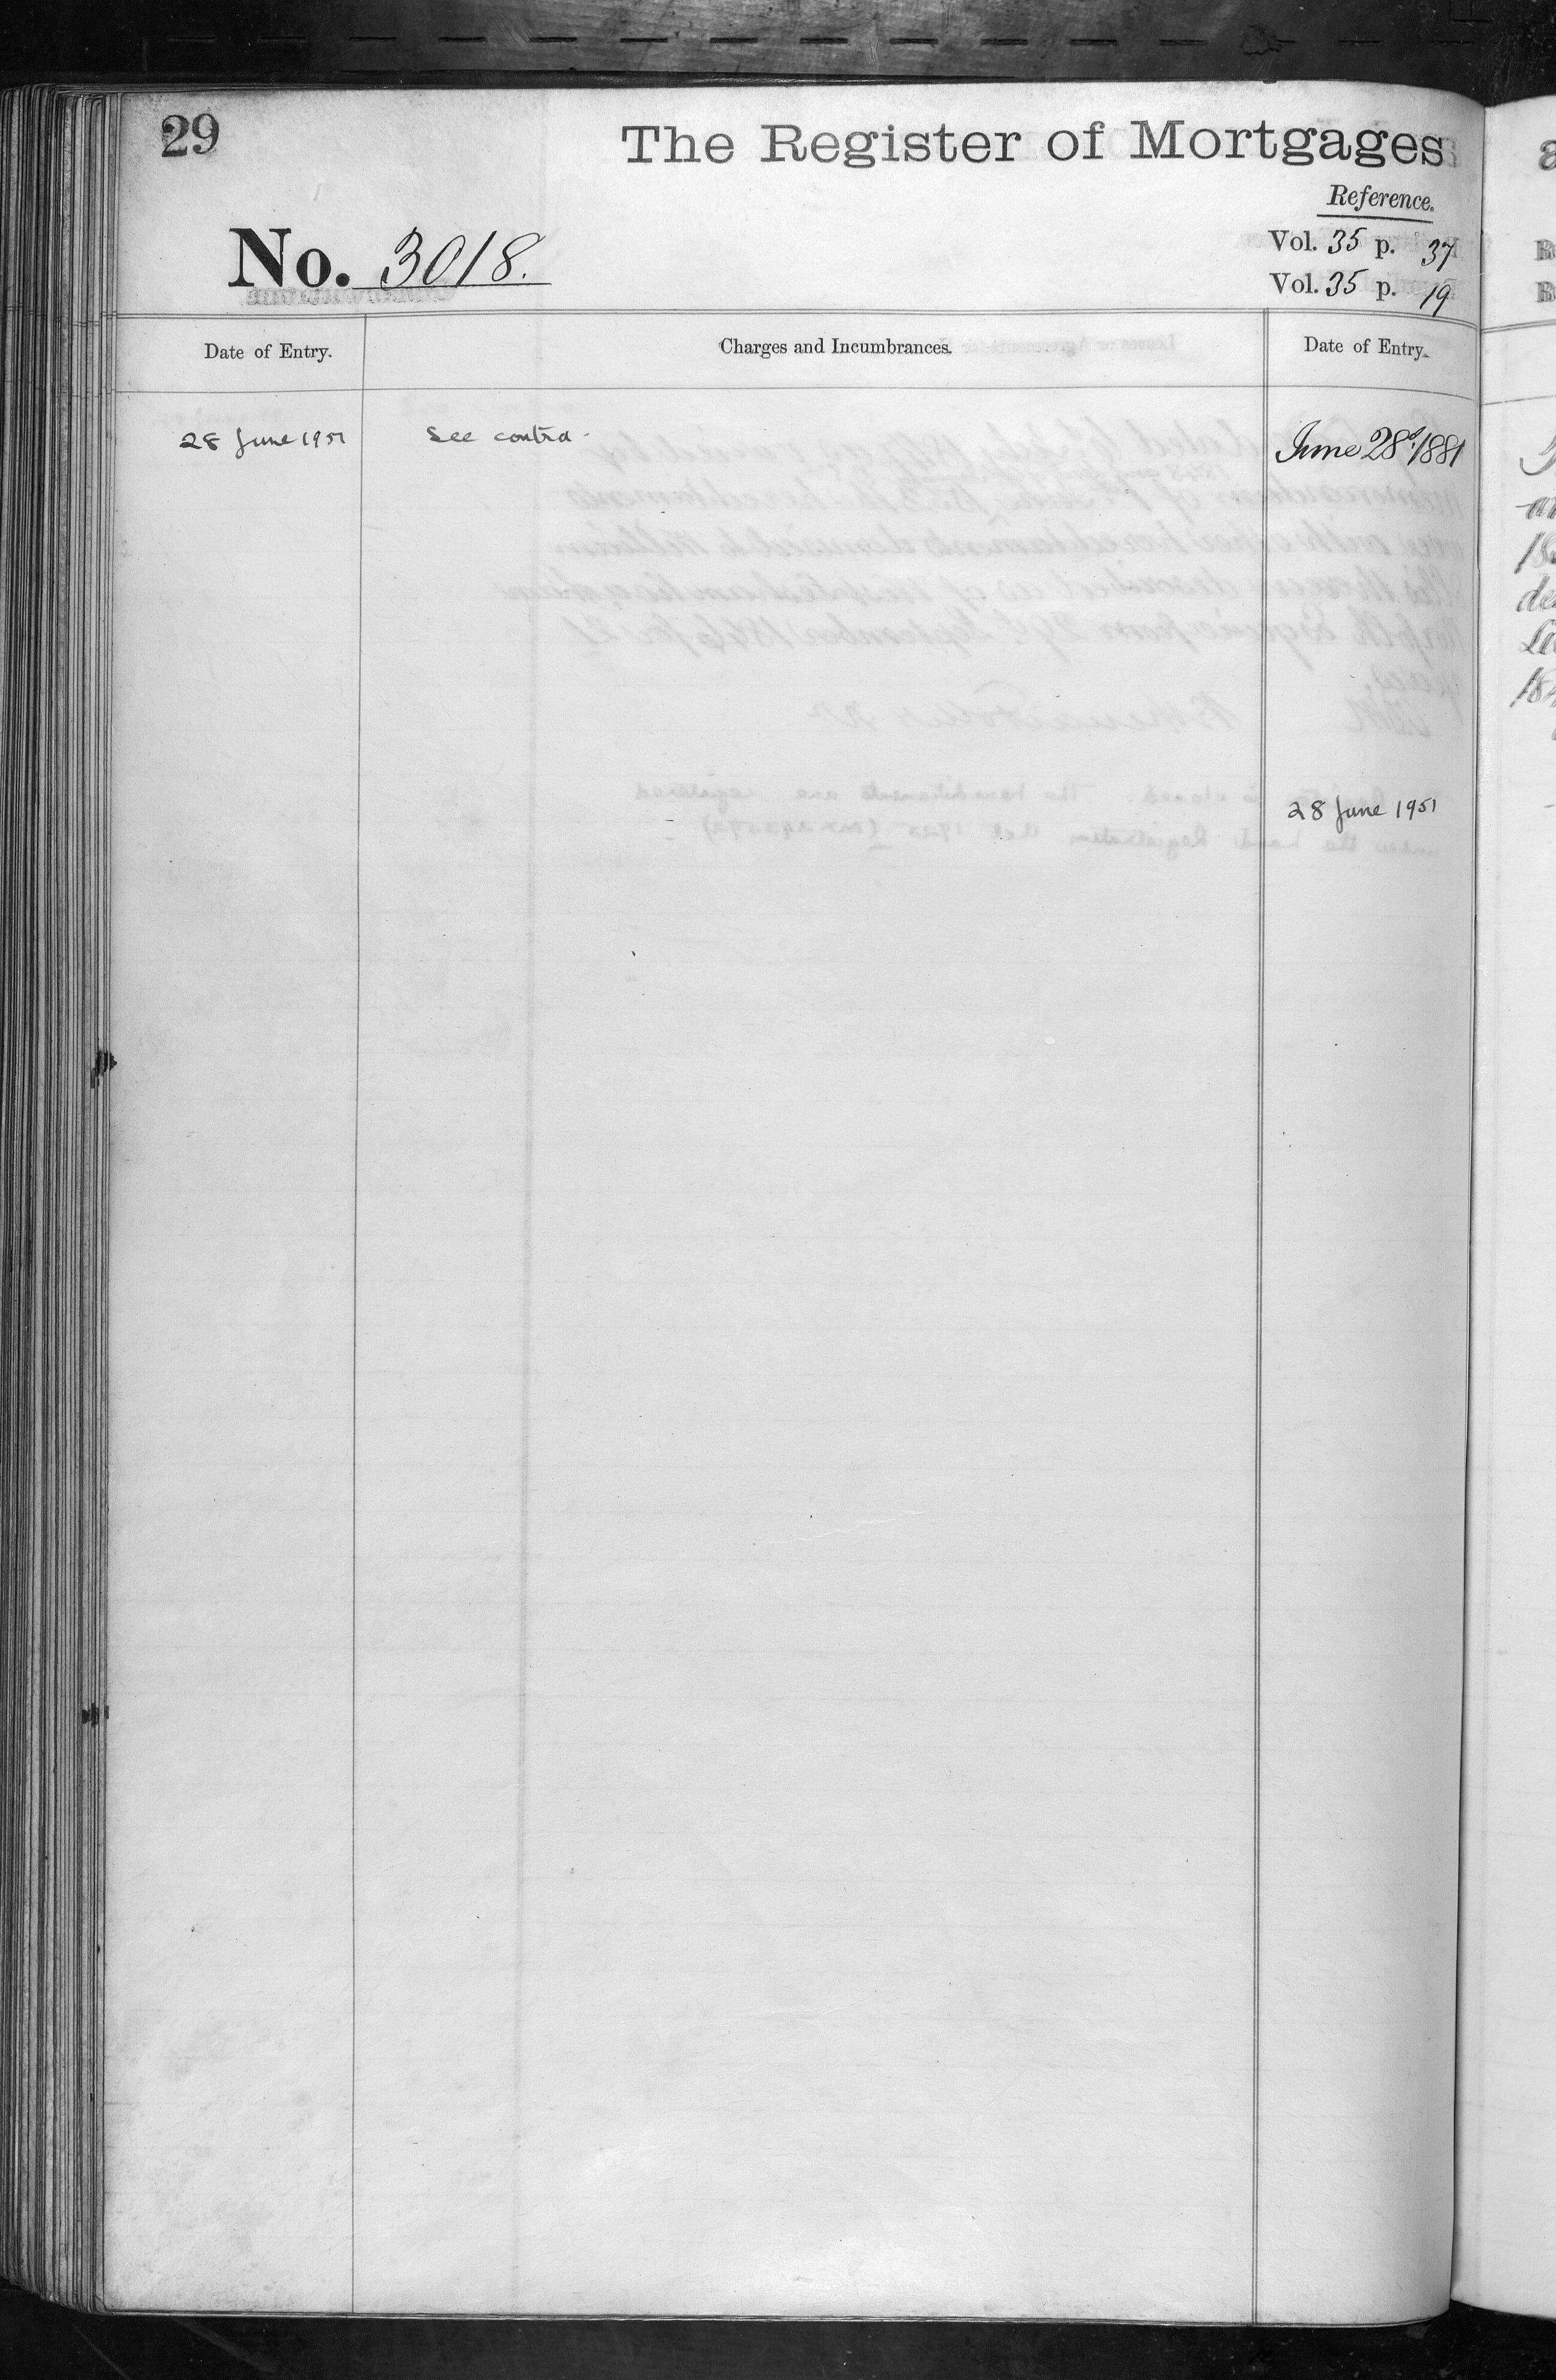 29
The Register of Mortgages
Reference.
No. 3018.
Vol. 35 p. 37
Vol. 35 p. 19
Date of Entry.
Charges and Incumbrances.
Date of Entry.
28 June 1951
See contra.
June 28th 1881
28 June 1951